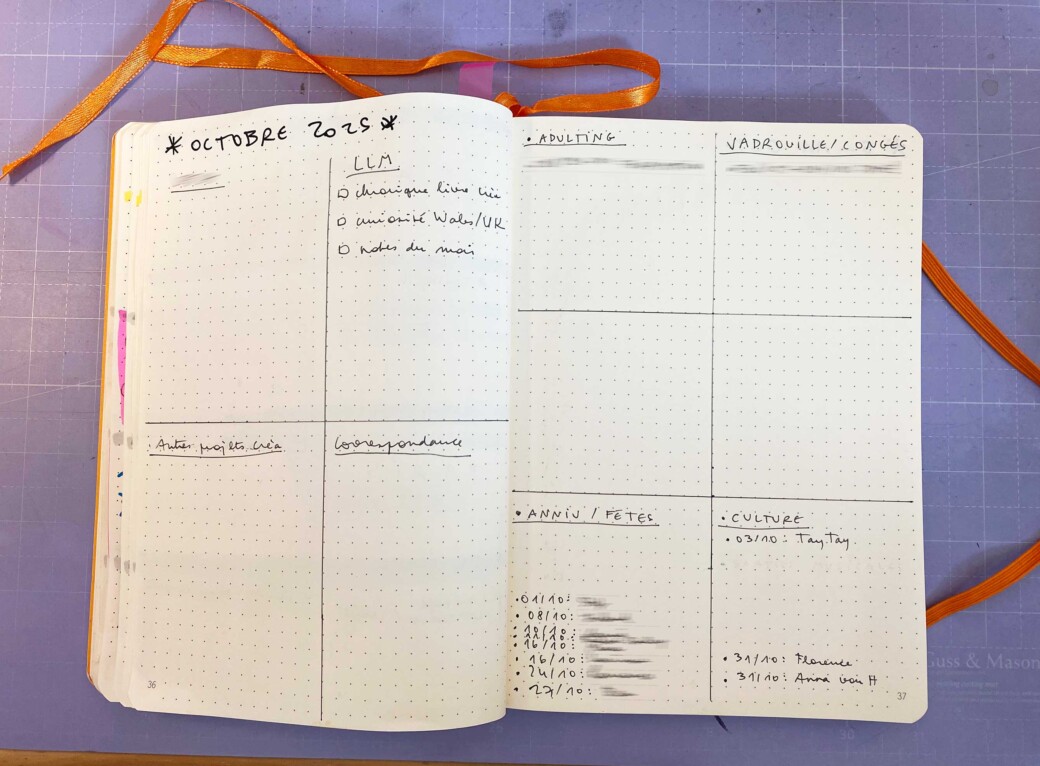 * OCTOBRE 2025 *
LLM
chronique livre créa
curiosité Wales/UK
notes du mois
Autres projets créa
Correspondance
36
• ADULTING
VADROUILLE/CONGÉS
• ANNIV / FÊTES
• 01/10:
• 08/10:
• 10/10:
• 16/10:
• 16/10:
• 24/10:
• 27/10:
• CULTURE
• 03/10: TayTay
• 31/10: Florence
• 31/10: Anna von H
37
Guss & Mason
30